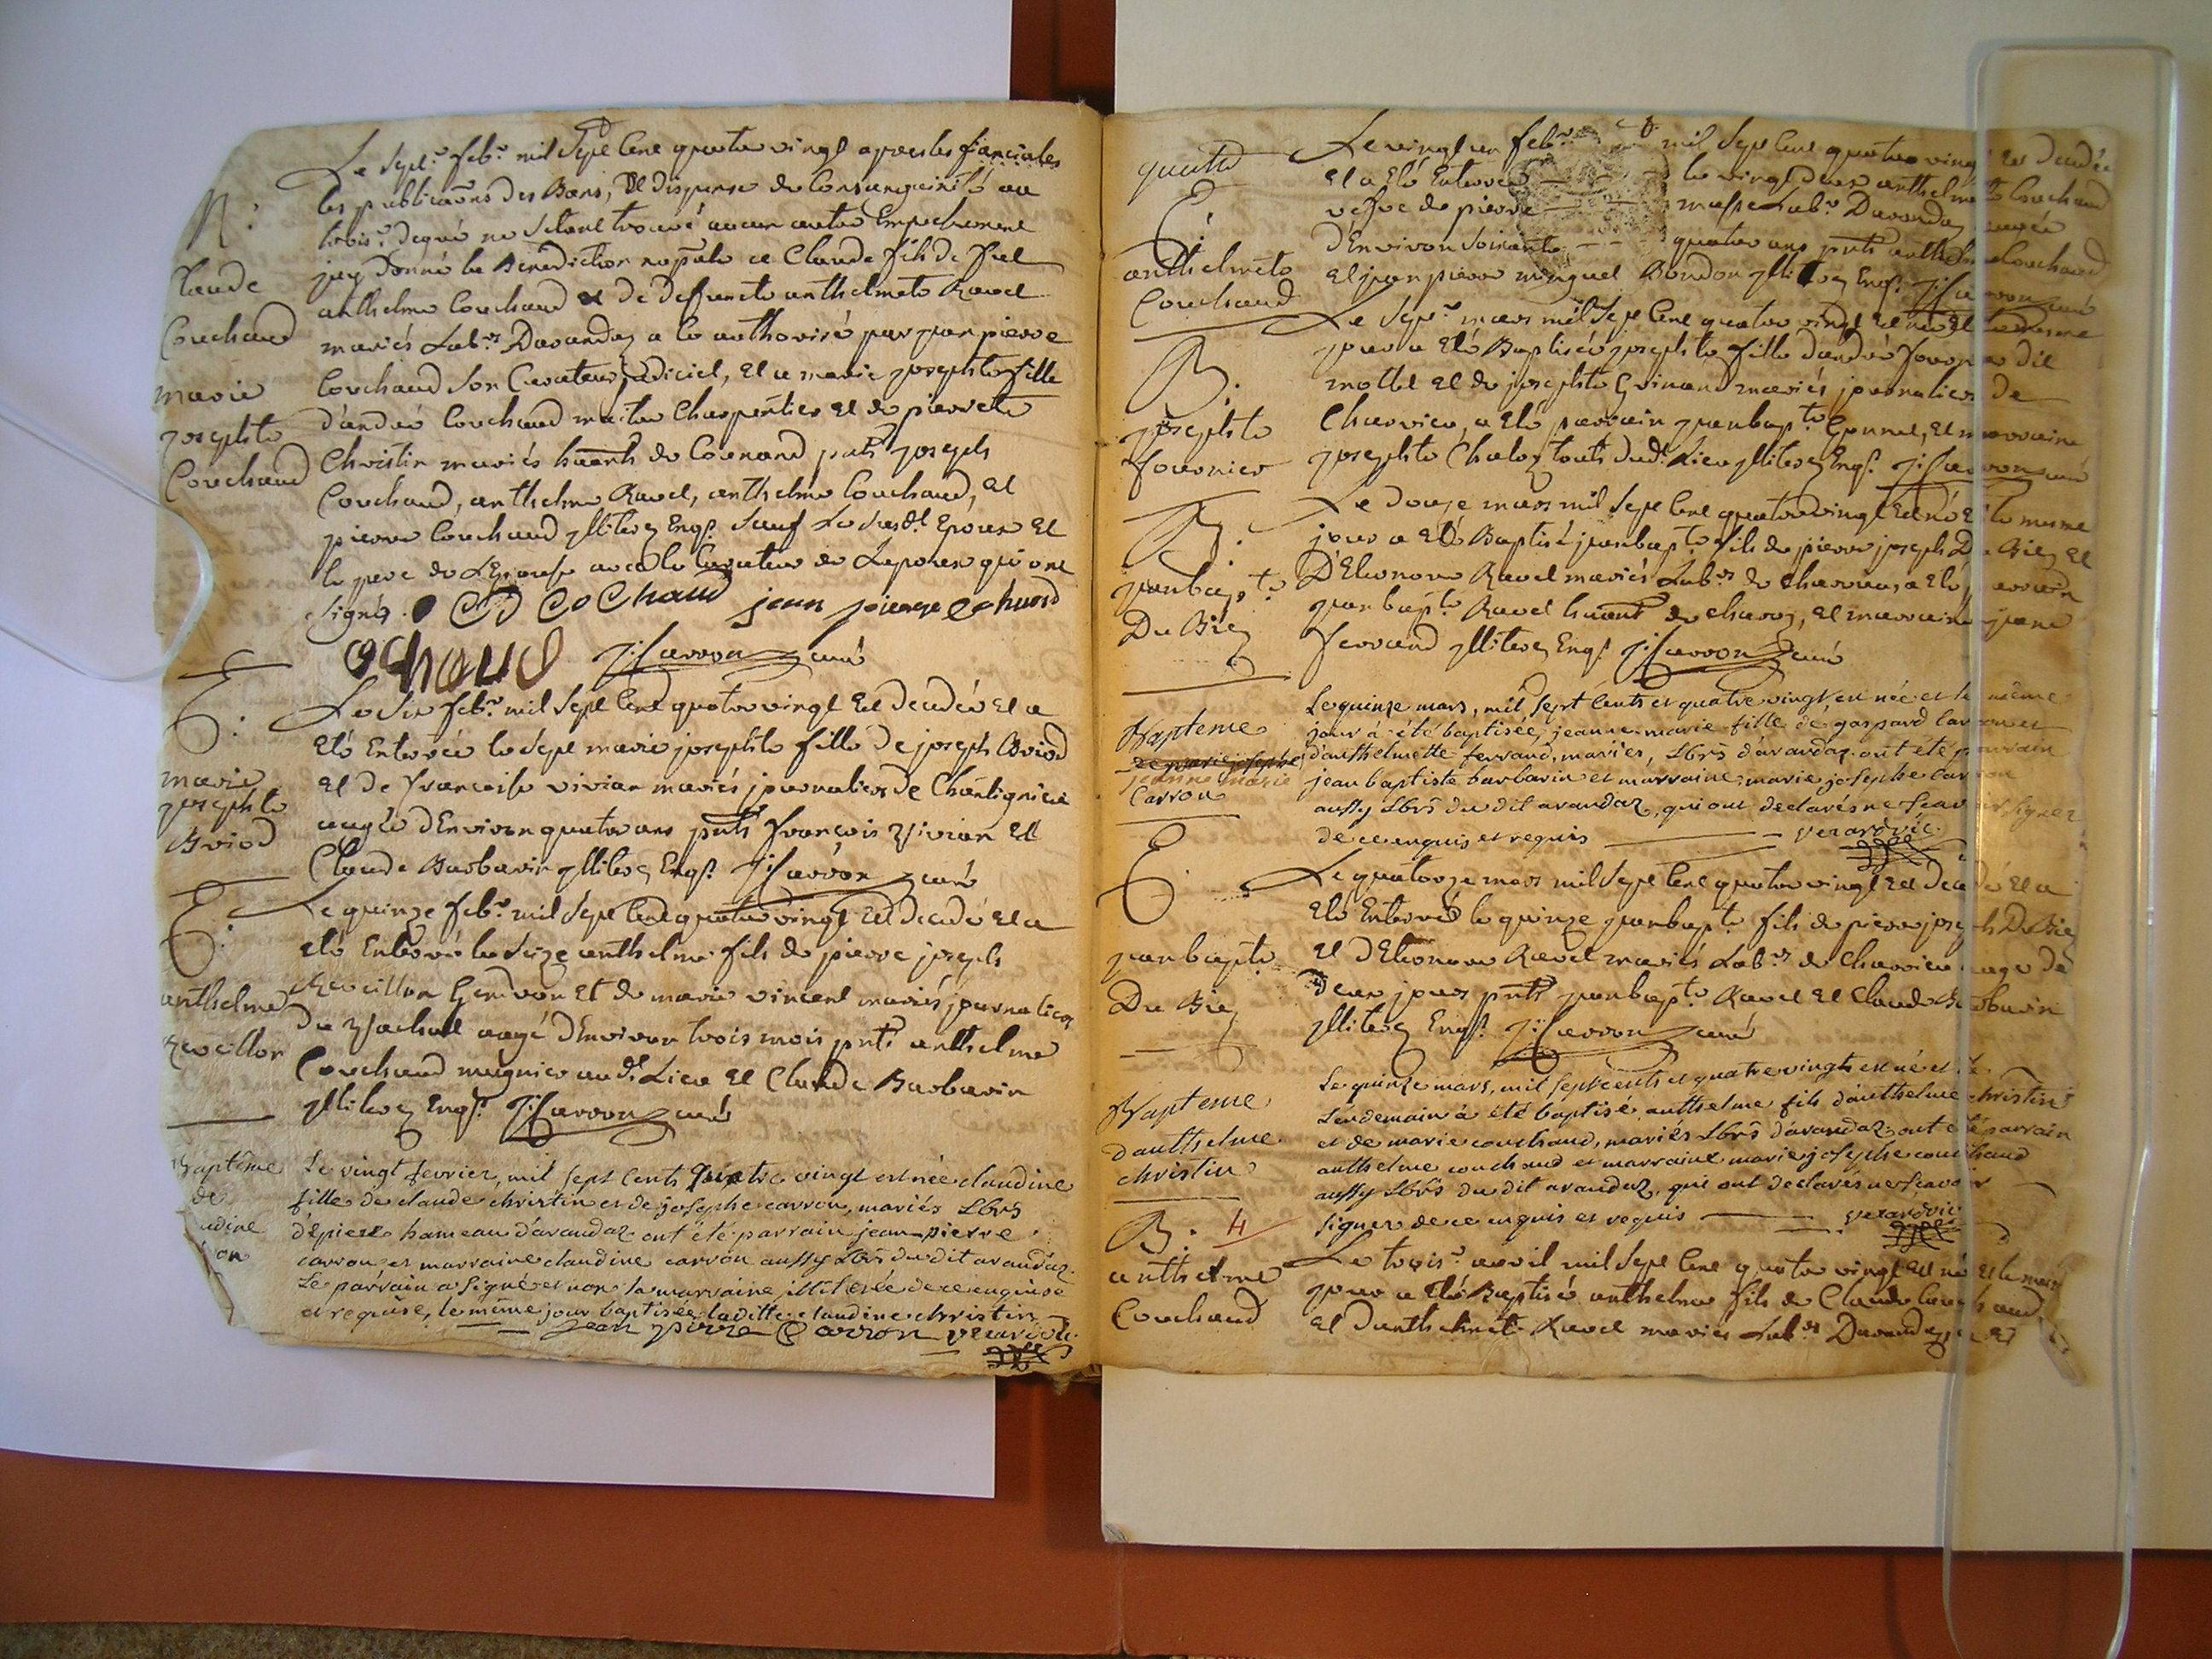 N:
Claude
Couchaud
marie
josephte
Couchaud
Le sept.e feb.r mil sept cent quatre vingt apres les fiançailes
les publicaõns des Bans, et dispense de Consanguinité au
trois.e degré ne s'etant trouvé aucun autre Empechement
jay donné la Benediction nupãle a Claude fils de feu
anthelme Couchaud et de deffuncte anthelmete Ravet
mariés Lab.rs Davandaz a ce authorisé par jean pierre
Couchaud son Curateur judiciel, et a marie josephte fille
d'andré Couchaud maitre Charpentier et de pierrete
Christin mariés hãnts de Conand pñts joseph
Couchaud, anthelme Ravet, anthelme Couchaud, et
pierre Couchaud jllitez Enq.s sauf le susd.t Epoux et
le pere de L'Epouse avec le Curateur de L'epoux qui ont
signés.
jean pierre cochaud
ochaud J: Carron curé
E:
marie
josephte
Briod
Le six feb.r mil sept cent quatre vingt Est decedée et a
Eté Enterrée le sept marie josephte fille de joseph Briod
et de francoise vivian mariés journaliers de Chantignieu
aagée d'Environ quatre ans pñts françois Vivian et
Claude Barbarin jllitez Enq.s J: Carron curé
E:
anthelme
Revillon
Le quinze feb.r mil sept cent quatre vingt Est decedé et a
eté Enterré le seize anthelme fils de pierre joseph
Revillon Gendron et de marie vincent mariés journaliers
Du Vachat aagé d'Environ trois mois pñts anthelme
Couchaud mugnier aud.t Lieu et Claude Barbarin
jllitez Enq.s J: Carron curé
Baptême
de
Le vingt fevrier, mil sept cents quatre vingt est née claudine
fille de claude christin et de josephe carron, mariés Lbrs
hameau d'arandaz ont été parrain jean pierre
carron, et marraine claudine carron aussy Lbrs du dit arandaz
Le parrain a signé et non la marraine illiterée de ce enquise
et requise, le même jour baptisée laditte claudine christin
Jean pierre Carron verard vic:
quatre
E:
anthelmete
Couchaud
Le vingt un feb.r mil sept cent quatre vingt est decedée
et a Eté Enterrée le vingt deux anthelmete Couchaud
vefve de pierre masse Lab.r Davandaz aagée
d'Environ soixante quatre ans pñts anthelme Couchaud
et jean pierre minguet Bondon jllitez Enq.s J: Carron curé
B.
josephte
fournier
Le sept.e mars mil sept cent quatre vingt Est née et le mesme
jour a Eté Baptisée josephte fille d'andré fournier dit
mottet et de josephte Guinand mariés journaliers de
Charvieu, a Eté parrain jean bap.te et marraine
josephte Chaley touts dud.t Lieu jllitez Enq.s J: Carron curé
B.
jean bap.te
Du Biez
Le douze mars mil sept cent quatre vingt Est né Et le mesme
jour a Eté Baptisé jean bap.te fils de pierre joseph Du Biez et
D'Eleonore Ravet mariés Lab.rs de Charvieu, a Eté parrain
jean bap.te Ravet hãnt de charvieu, et marraine jeane
ferrand jllitez Enq.s J: Carron curé
Bapteme
de marie josephe
jeanne marie
Carron
Le quinze mars, mil sept cents et quatre vingt, est née et le même
jour à été baptisée, jeanne marie fille de gaspard carron et
d'anthelmette ferrand, mariés, Lbrs d'arandaz. ont été parrain
jean baptiste barbarin et marraine, marie josephe carron
aussy Lbrs du dit arandaz, qui ont declarés ne scavoir signer
de ce enquis et requis verard vic:
E.
jean bapte
Du Biez
Le quatorze mars mil sept cent quatre vingt Est decedé et a
eté Enterré le quinze jean bap.te fils de pierre joseph Du Biez
et d'Eleonore Ravet mariés Lab.rs de Charvieu age de
deux jours pñts jean bap.te Ravet et Claude Barbarin
jllitez Enq.s J: Carron curé
Bapteme
d'anthelme
christin
Le quinze mars, mil sept cents et quatre vingts est né et le
Lendemain à été baptisé, anthelme fils d'anthelme christin
et de marie couchaud, mariés Lbrs d'arandaz, ont été parrain
anthelme couchaud et marraine marie josephe couchaud
aussy Lbrs du dit arandaz, qui ont declarés ne scavoir
signer de ce enquis et requis verard vic:
B. 4
anthelme
Couchaud
Le trois.e avril mil sept cent quatre vingt Est né et le mesme
jour a Eté Baptisé anthelme fils de Claude Couchaud
et d'anthelmete Ravet mariés Lab.rs Davandaz